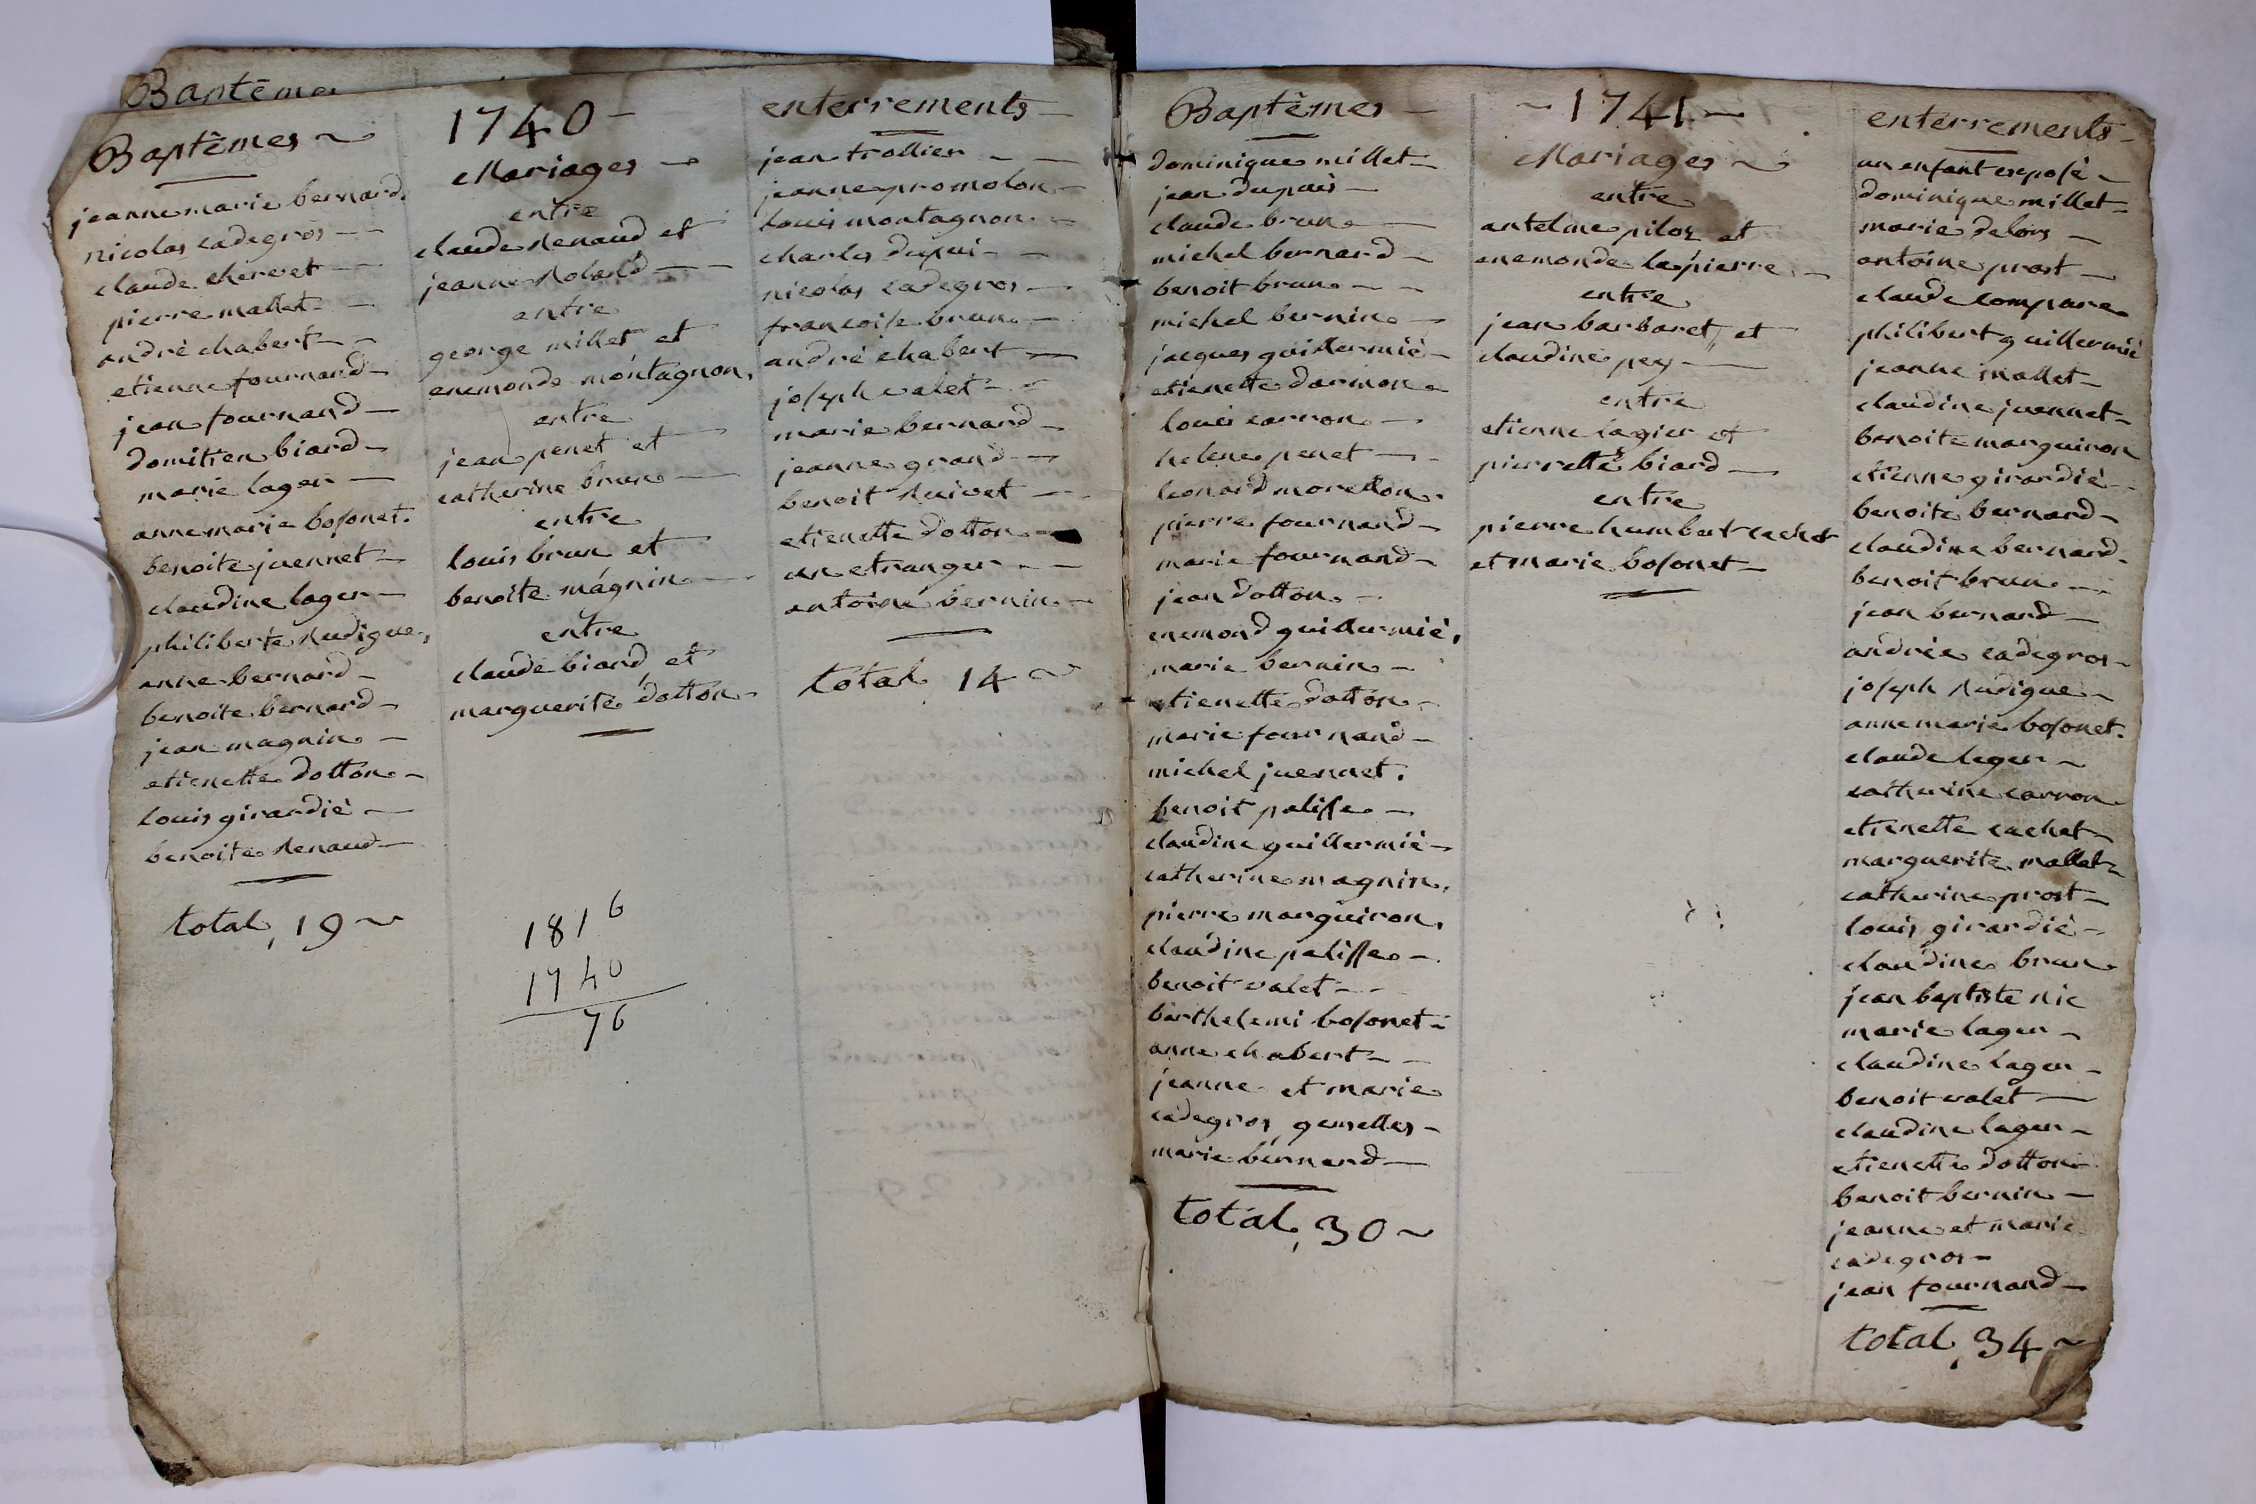 Baptêmes
Baptêmes ~
jeanne marie bernard.
nicolas cadegros -
claude chervet -
pierre mallet -
andrè chabert -
etienne fournand -
jean fournand -
domitien biard -
marie lager -
anne marie bosonet.
benoite juennet -
claudine lager -
philiberte rudigue,
anne bernard -
benoite bernard -
jean magnin -
etienette dotton -
louis girardié -
benoite renaud -
total, 19 ~
1740 -
Mariages ~
entre
claude renaud et
jeanne roland -
entre
george millet et
enemonde montagnon,
entre
jean penet et
catherine brun -
entre
louis brun et
benoite magnin -
entre
claude biard et
marguerite dotton -
1816
1740
76
enterrements -
jean trollier -
jeanne promolon -
louis montagnon -
charles dupui -
nicolas cadegros -
francoise brun -
andrè chabert -
joseph valet -
marie bernard -
jeanne grand -
benoit ruivet -
etienette dotton -
un etranger -
antoine bernin -
total, 14 ~
Baptêmes -
dominique millet -
jean dupuis -
claude brun -
michel bernard -
benoit brun -
michel bernin -
jacques guillermié -
etienette darmon -
louis carron -
helene penet -
leonard moretton.
pierre fournand -
marie fournand -
jean dotton -
enemond guillermié,
marie bernin -
etienette dotton -
marie fournand -
michel juennet.
benoit palisse -
claudine guillermié -
catherine magnin,
pierre marguiron,
claudine palisse -
benoit valet -
barthelemi bosonet -
anne chabert -
jeanne et marie
cadegros gemelles -
marie bernard -
total, 30 ~
~ 1741 ~
Mariages ~
entre
antelme piloz et
enemonde lapierre -
entre
jean barbaret, et
claudine pey -
entre
etienne lagier et
pierrette biard -
entre
pierre humbert cachet
et marie bosonet -
enterrements -
un enfant exposé -
dominique millet -
marie delors -
antoine prost -
claude compare
philibert guillermié
jeanne mallet -
claudine juennet -
benoite marguiron
etienne girardié -
benoite bernard -
claudine bernard -
benoit brun -
jean bernard -
andrée cadegros -
joseph rudigue -
anne marie bosonet.
claude leger -
catherine carron
etienette cachet
marguerite mallet -
catherine prost -
louis girardié -
claudine brun
jean baptiste nic
marie lager -
claudine lager -
benoit valet -
claudine lager -
etienette dotton -
benoit bernin -
jeanne et marie
cadegros -
jean fournand -
total, 34 ~